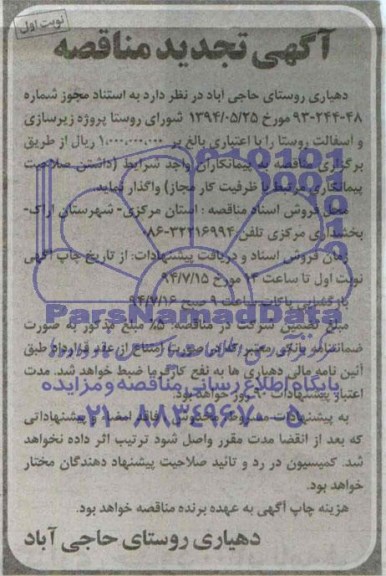 نوبت اول
آگهی تجدید مناقصه
دهیاری روستای حاجی آباد در نظر دارد به استناد مجوز شماره
۹۳-۲۴۴-۴۸ مورخ ۱۳۹۴/۰۵/۲۵ شورای روستا پروژه زیرسازی
و آسفالت روستا را با اعتباری بالغ بر ۱،۰۰۰،۰۰۰،۰۰۰ ریال از طریق
برگزاری مناقصه به پیمانکاران واجد شرایط (داشتن صلاحیت
پیمانکاری مرتبط با ظرفیت کار مجاز) واگذار نماید.
محل فروش اسناد مناقصه: استان مرکزی- شهرستان اراک-
بخشداری مرکزی تلفن ۳۲۲۱۶۹۹۴-۰۸۶
زمان فروش اسناد و دریافت پیشنهادات: از تاریخ چاپ آگهی
نوبت اول تا ساعت ۱۴ مورخ ۹۴/۷/۱۵
بازگشایی پاکات ساعت ۹ صبح ۹۴/۷/۱۶
مبلغ تضمین شرکت در مناقصه: ۵٪ مبلغ مذکور به صورت
ضمانتنامه بانکی معتبر که در صورت امتناع از عقد قرارداد طبق
آئین نامه مالی دهیاری ها به نفع کارفرما ضبط خواهد شد. مدت
اعتبار پیشنهادات ۹۰ روز خواهد بود.
به پیشنهادات مشروط، مخدوش، فاقد امضا و پیشنهاداتی
که بعد از انقضا مدت مقرر واصل شود ترتیب اثر داده نخواهد
شد. کمیسیون در رد و تائید صلاحیت پیشنهاد دهندگان مختار
خواهد بود.
هزینه چاپ آگهی به عهده برنده مناقصه خواهد بود.
دهیاری روستای حاجی آباد
ParsNamadData
پایگاه اطلاع رسانی مناقصه و مزایده
۰۲۱-۸۸۳۴۹۶۷۰-۵